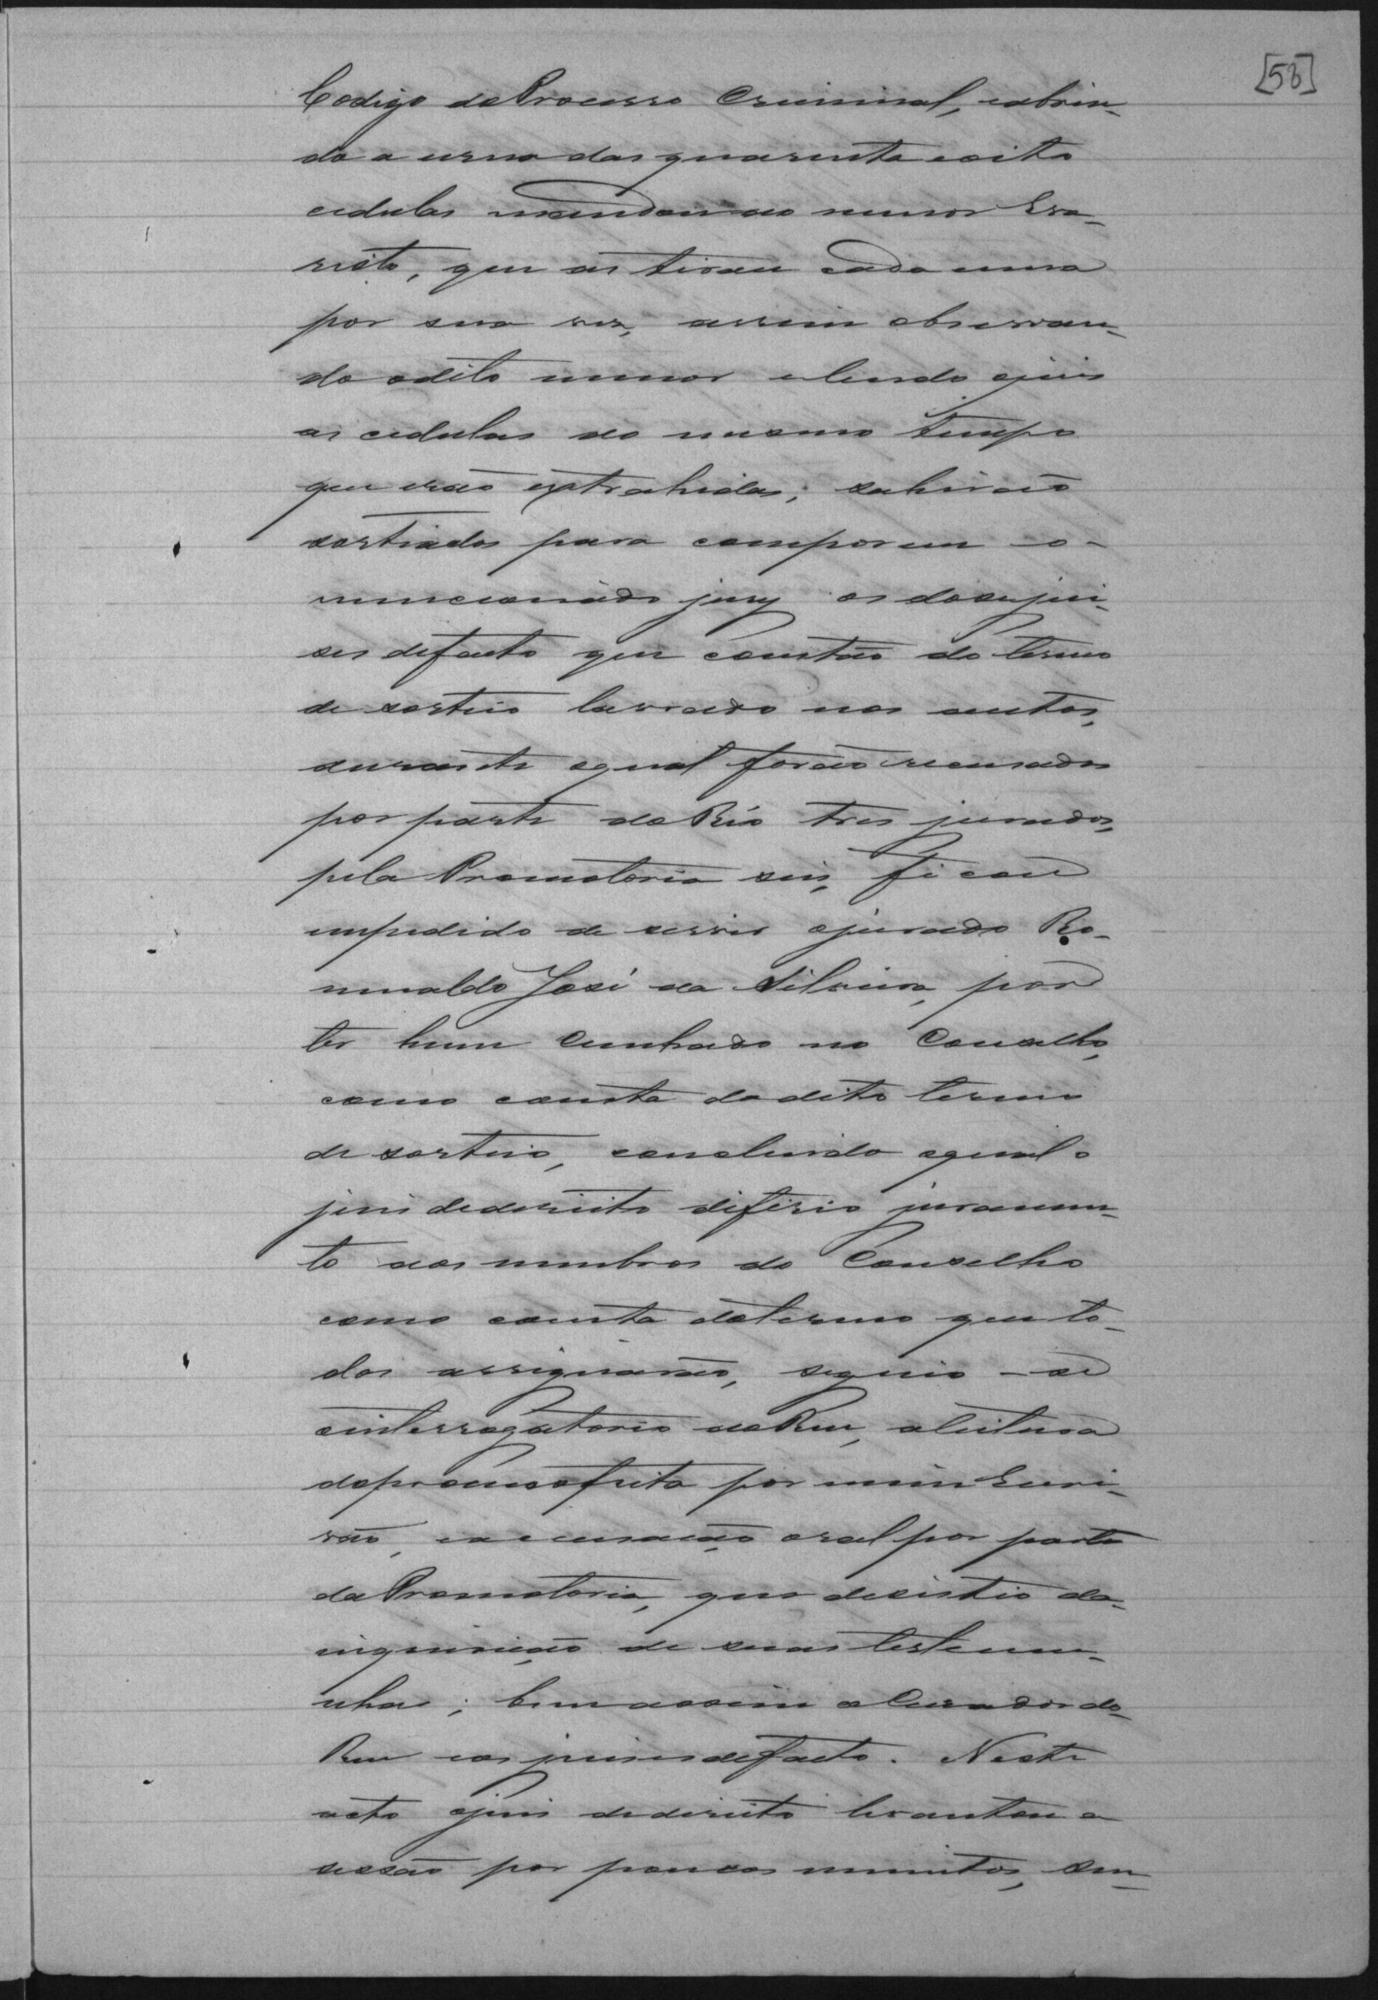 [58]
Codigo do Processo Criminal, e abrin-
do a urna das quarenta e oito
cedulas mandou ao menor Eva-
risto, que as tirou cada uma
por sua vez, assim observan-
do o dito menor e lendo o juis
as cedulas ao mesmo tempo
que erão extrahidas; sahirão
sortiados para comporem o
mencionado jury os dose jui-
ses de facto que constão do termo
de sorteio lavrado nos autos,
durante o qual forão recusados
por parte do Réo tres jurados,
pela Promotoria seis, ficou
impedido de servir o jurado Ro-
mualdo José da Silveira, por
ter hum Cunhado no Conselho,
como consta do dito termo
de sorteio, concluido o qual o
juis de dereito diferio juramen-
to aos membros do Conselho
como consta do termo que to-
dos assignarão, seguio-se
o interrogatorio do Reu, a leitura
do processo feita por mim Escri-
vão, e a accusação oral por parte
da Promotoria, que desistio da
inquirição de suas testemu-
nhas; bem assim o Curador do
Reu e os juises de facto. Neste
acto o juis de dereito levantou a
sessão por poucos minutos, sem